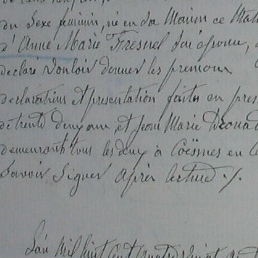 du sexe féminin, né en sa Maison ce Mat
d'Anne Marie Fresnel son épouse,
déclare vouloir donner les prénoms
déclaration et présentation faites en pres
de trente deux ans et pour Marie
demeurant tous les deux à Coësmes en
Savoir Signer après lecture ./.
L'an Mil huit cent quatre vingt